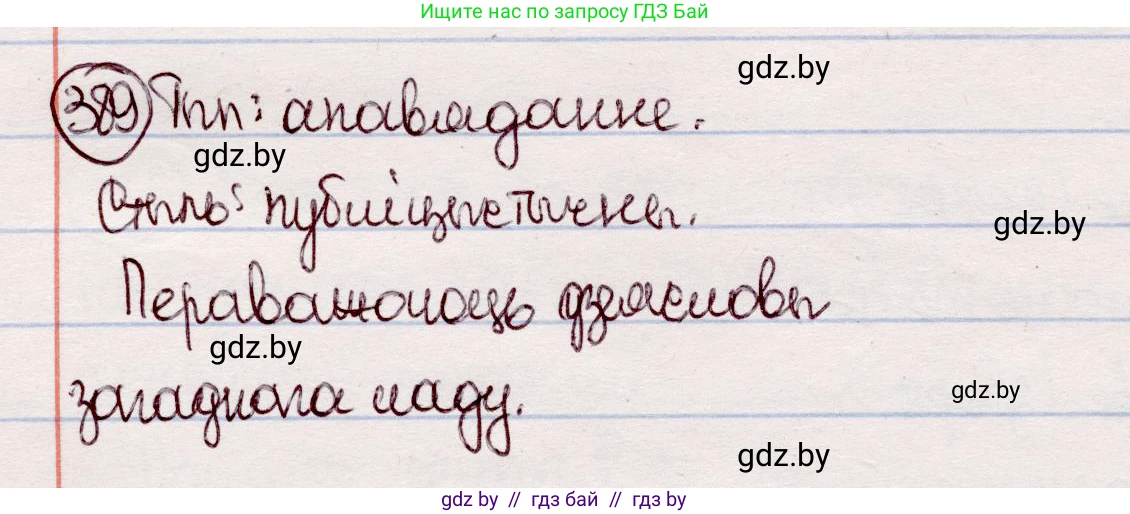 Ищите нас по запросу ГДЗ Бай
gdz.by
389 Тып: апавяданне.
gdz.by
Стыль: публіцыстычны.
gdz.by
Пераважаюць дзеясловы
gdz.by
загаднага ладу.
gdz.by
gdz.by
gdz by // гдз бай // гдз by